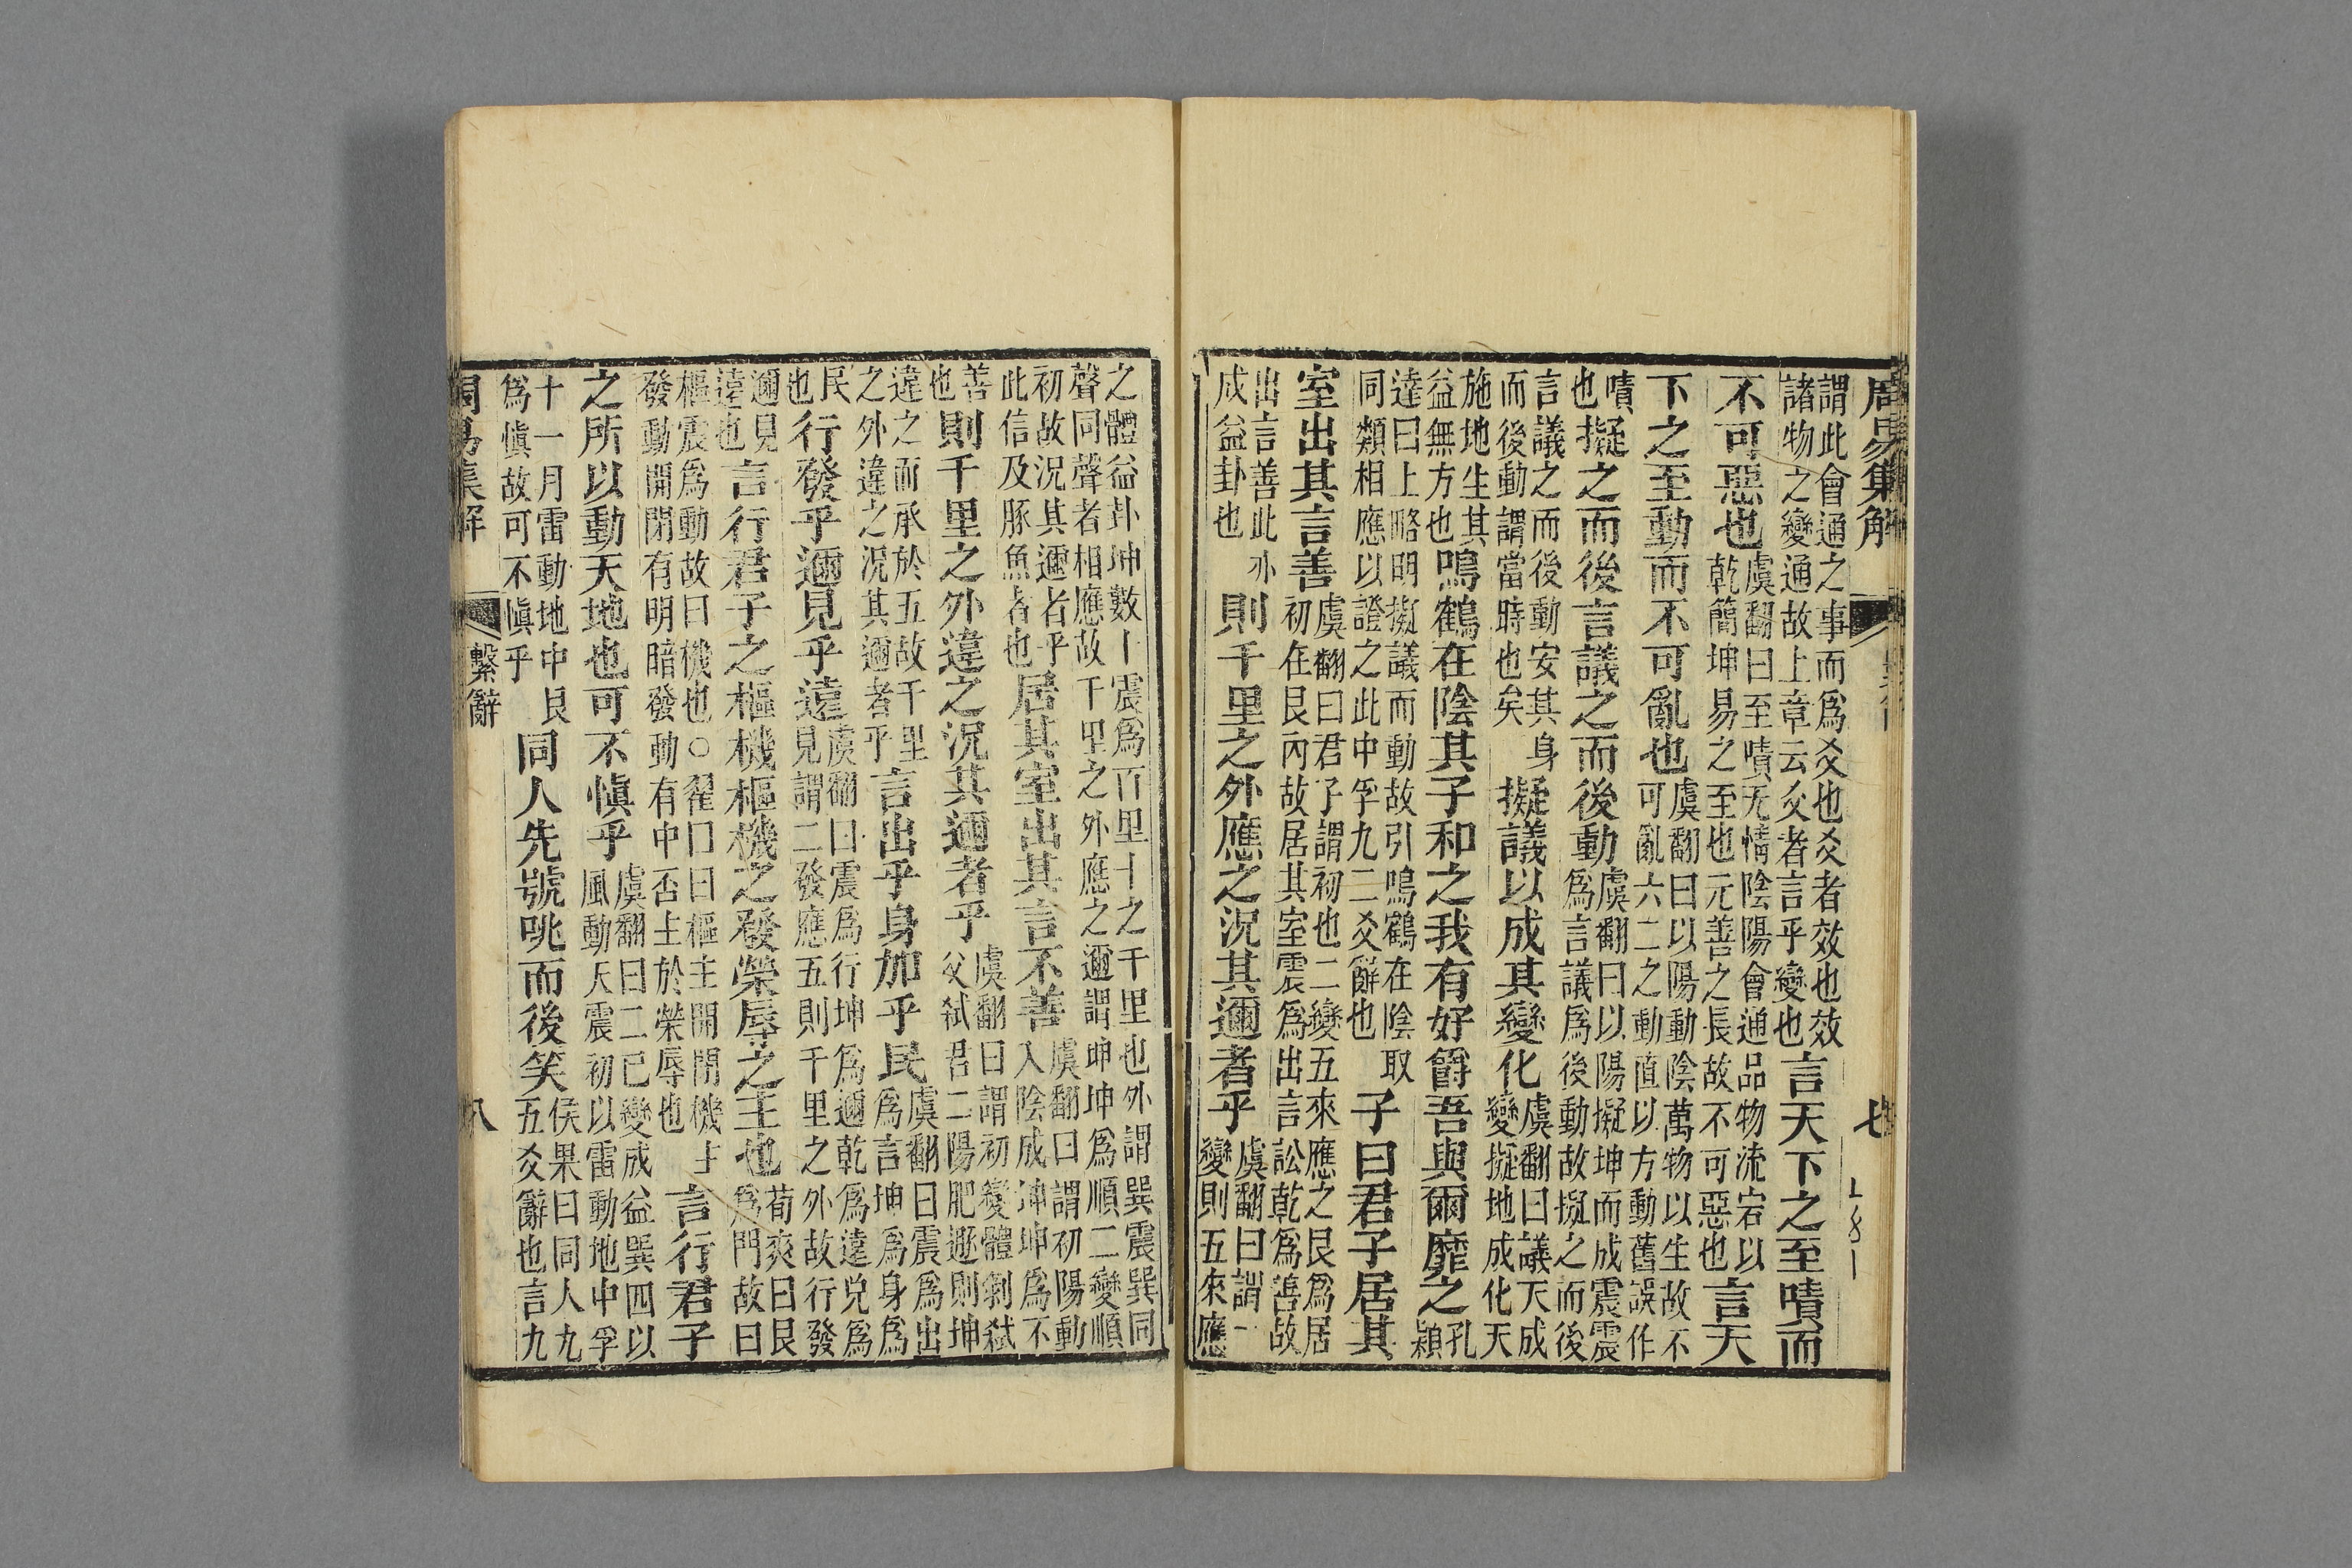 周易集解
七
謂此會通之事而為爻也爻者效也效
諸物之變通故上章云爻者言乎變也言天下之至嘖而
不可惡也虞翻曰至嘖无情陰陽會通品物流宕以
乾簡坤易之至也元善之長故不可惡也言天
下之至動而不可亂也虞翻曰以陽動陰萬物以生故不
可亂六二之動直以方動舊誤作
嘖
也擬之而後言議之而後動虞翻曰以陽擬坤而成震震
為言議為後動故擬之而後
言議之而後動安其身
而後動謂當時也矣擬議以成其變化虞翻曰議天成
變擬地成化天
施地生其
益無方也鳴鶴在陰其子和之我有好爵吾與爾靡之孔
穎
達曰上略明擬議而動故引鳴鶴在陰取
同類相應以證之此中孚九二爻辭也子曰君子居其
室出其言善虞翻曰君子謂初也二變五來應之艮為居
初在艮內故居其室震為出言訟乾為善故
出言善此亦
成益卦也則千里之外應之況其邇者乎虞翻曰謂二
變則五來應
之體益卦坤數十震為百里十之千里也外謂巽震巽同
聲同聲者相應故千里之外應之邇謂坤坤為順二變順
初故況其邇者乎
此信及豚魚者也居其室出其言不善虞翻曰謂初陽動
入陰成坤坤為不
善
也則千里之外違之況其邇者乎虞翻曰謂初變體剝弒
父弒君二陽肥遯則坤
違之而承於五故千里
之外違之況其邇者乎言出乎身加乎民虞翻曰震為出
為言坤為身為
民
也行發乎邇見乎遠虞翻曰震為行坤為邇乾為遠兌為
見謂二發應五則千里之外故行發
邇見
遠也言行君子之樞機樞機之發榮辱之主也荀爽曰艮
為門故曰
樞震為動故曰機也○翟囗曰樞主開閉機主
發動開閉有明暗發動有中否主於榮辱也言行君子
之所以動天地也可不慎乎虞翻曰二已變成益巽四以
風動天震初以雷動地中孚
十一月雷動地中艮
為慎故可不慎乎同人先號咷而後笑侯果曰同人九
五爻辭也言九
周易集解
繫辭
八